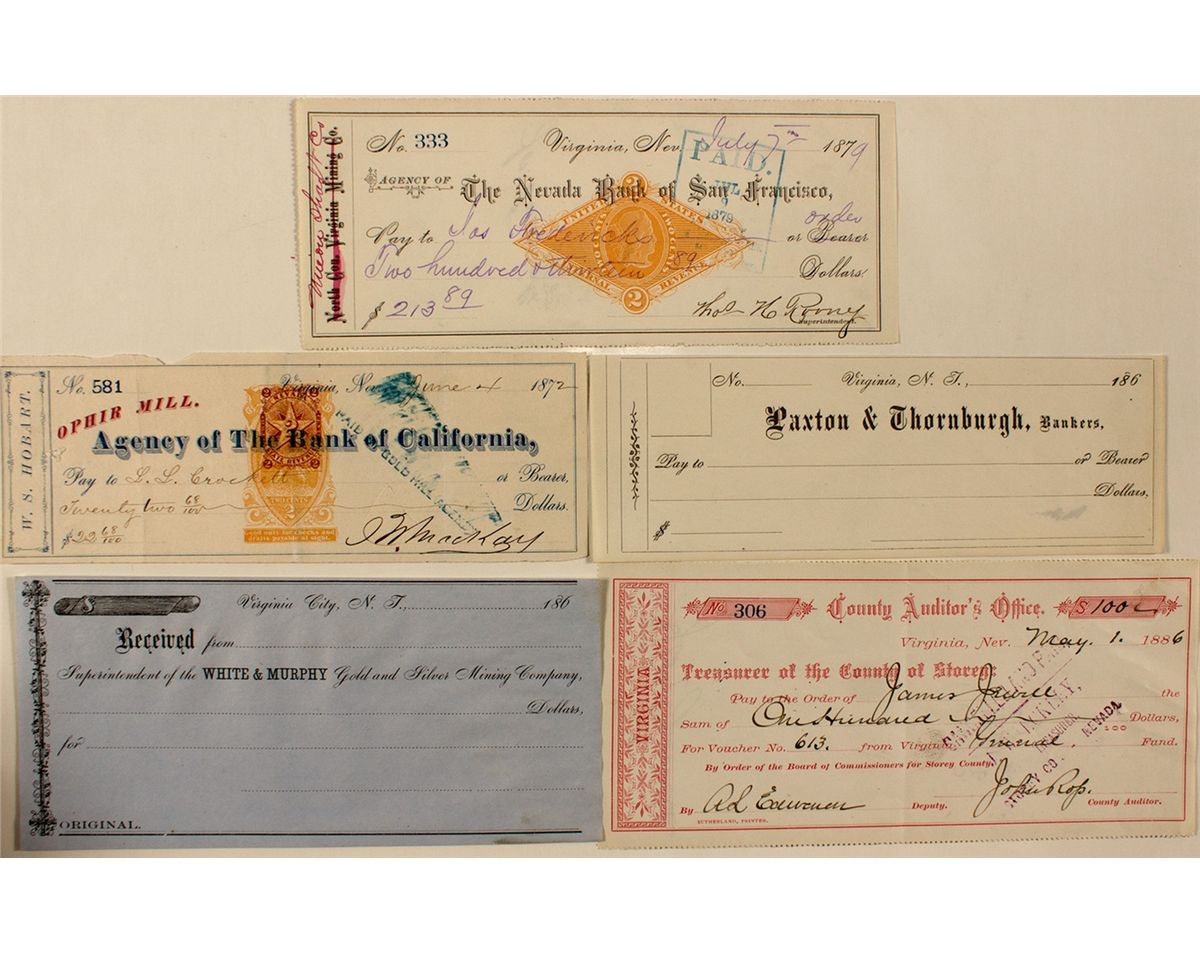 No. 333 Virginia, Nev. July 7th 1879
Union Shaft Co
North Con. Virginia Mining Co.
PAID.
JUL
9
1879
AGENCY OF The Nevada Bank of San Francisco,
order
Pay to Jos Fredericks or Bearer
Two hundred & thirteen 89 Dollars
$ 213 89
Thos H Rooney
Superintendent.
2
UNITED STATES
INTERNAL REVENUE
2
W. S. HOBART.
No. 581 Virginia, Nev. June 4 1872
OPHIR MILL.
Agency of The Bank of California,
Pay to L. L. Crockett or Bearer,
Twenty two 68/100 Dollars.
$22 68/100
J W Mackay
NEVADA
2
TWO CENTS
2
Good only for checks and
drafts payable at sight.
PAID
GOLD HILL AGENCY
No. Virginia, N. T., 186
Paxton & Thornburgh, Bankers,
Pay to or Bearer
Dollars,
$
$ Virginia City, N. T., 186
Received from
Superintendent of the WHITE & MURPHY Gold and Silver Mining Company,
Dollars,
for
ORIGINAL.
VIRGINIA
No. 306 County Auditor's Office. $ 100
Virginia, Nev. May. 1. 1886
Treasurer of the County of Storey:
Pay to the Order of James the
Sum of One Hundred 100 Dollars,
For Voucher No. 613. from Virginia General Fund.
By Order of the Board of Commissioners for Storey County.
John Ross.
By Deputy. County Auditor.
SUTHERLAND, PRINTER.
TREASURER
STOREY CO. NEVADA